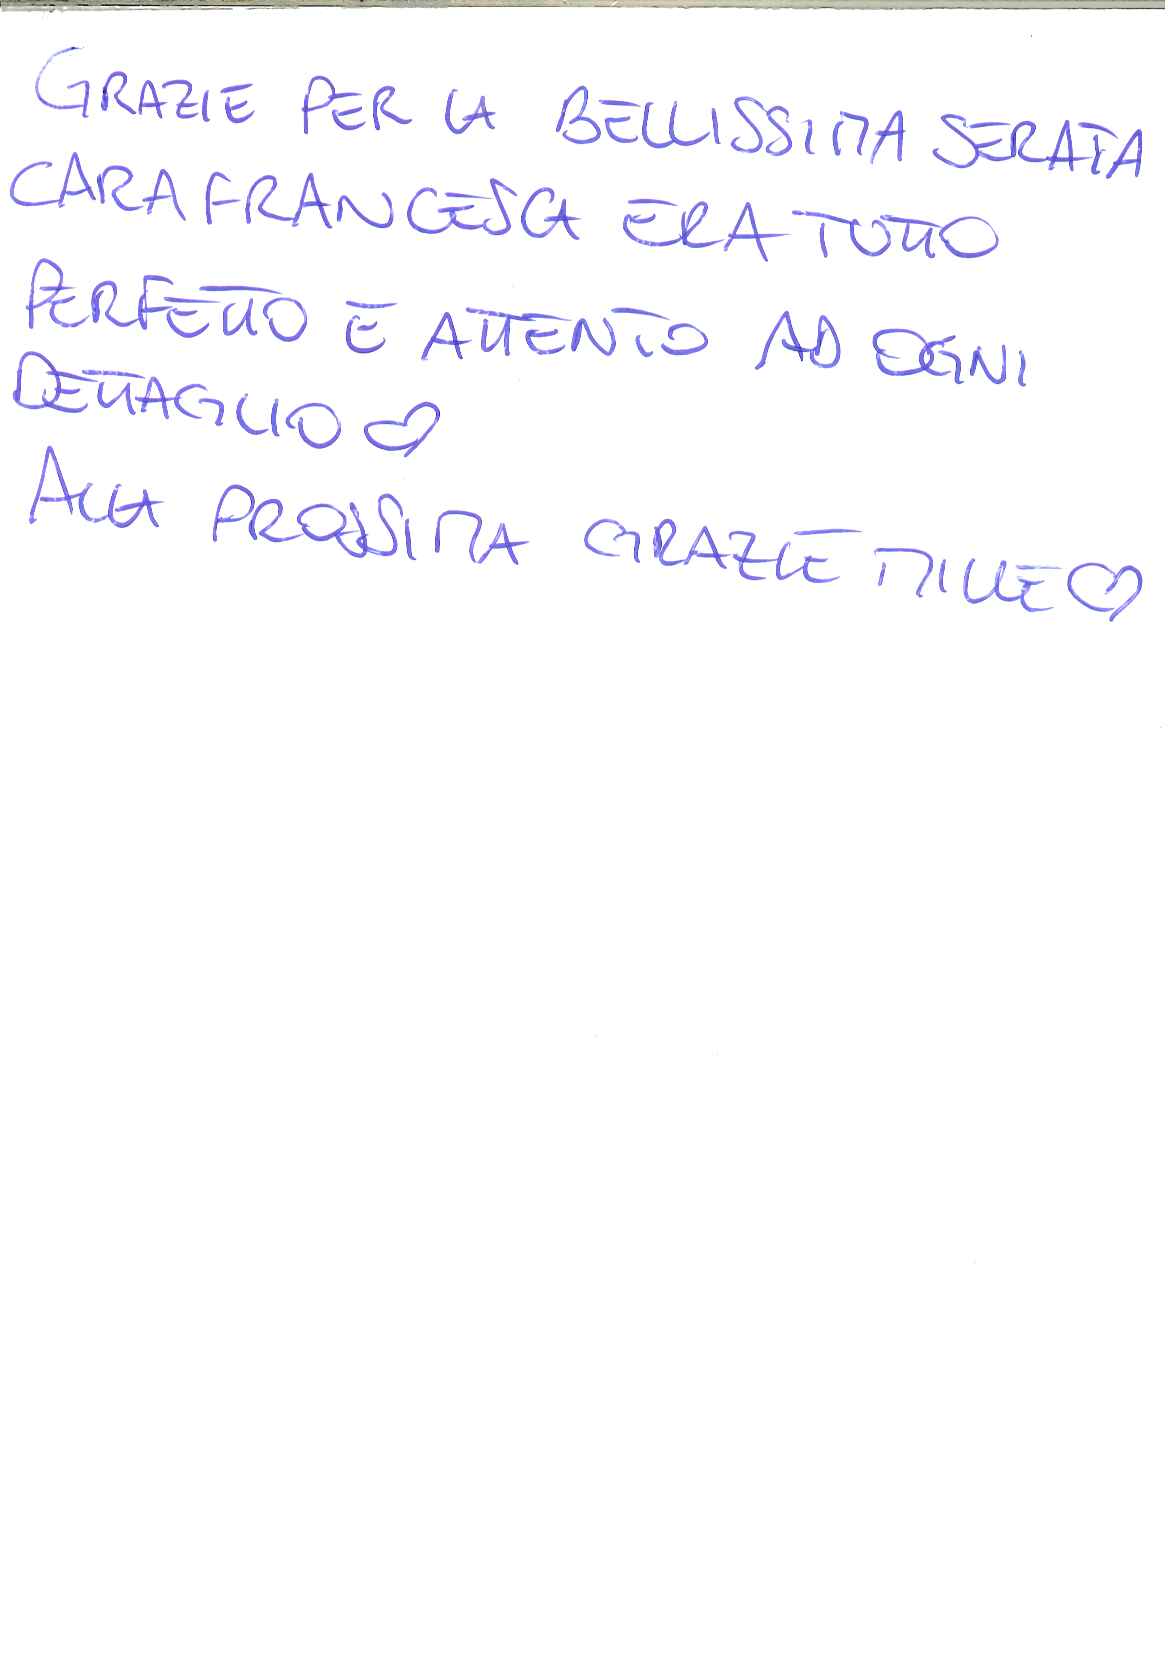 GRAZIE PER LA BELLISSIMA SERATA
CARA FRANCESCA ERA TUTTO
PERFETTO E ATTENTO AD OGNI
DETTAGLIO ♡
ALLA PROSSIMA GRAZIE MILLE ♡